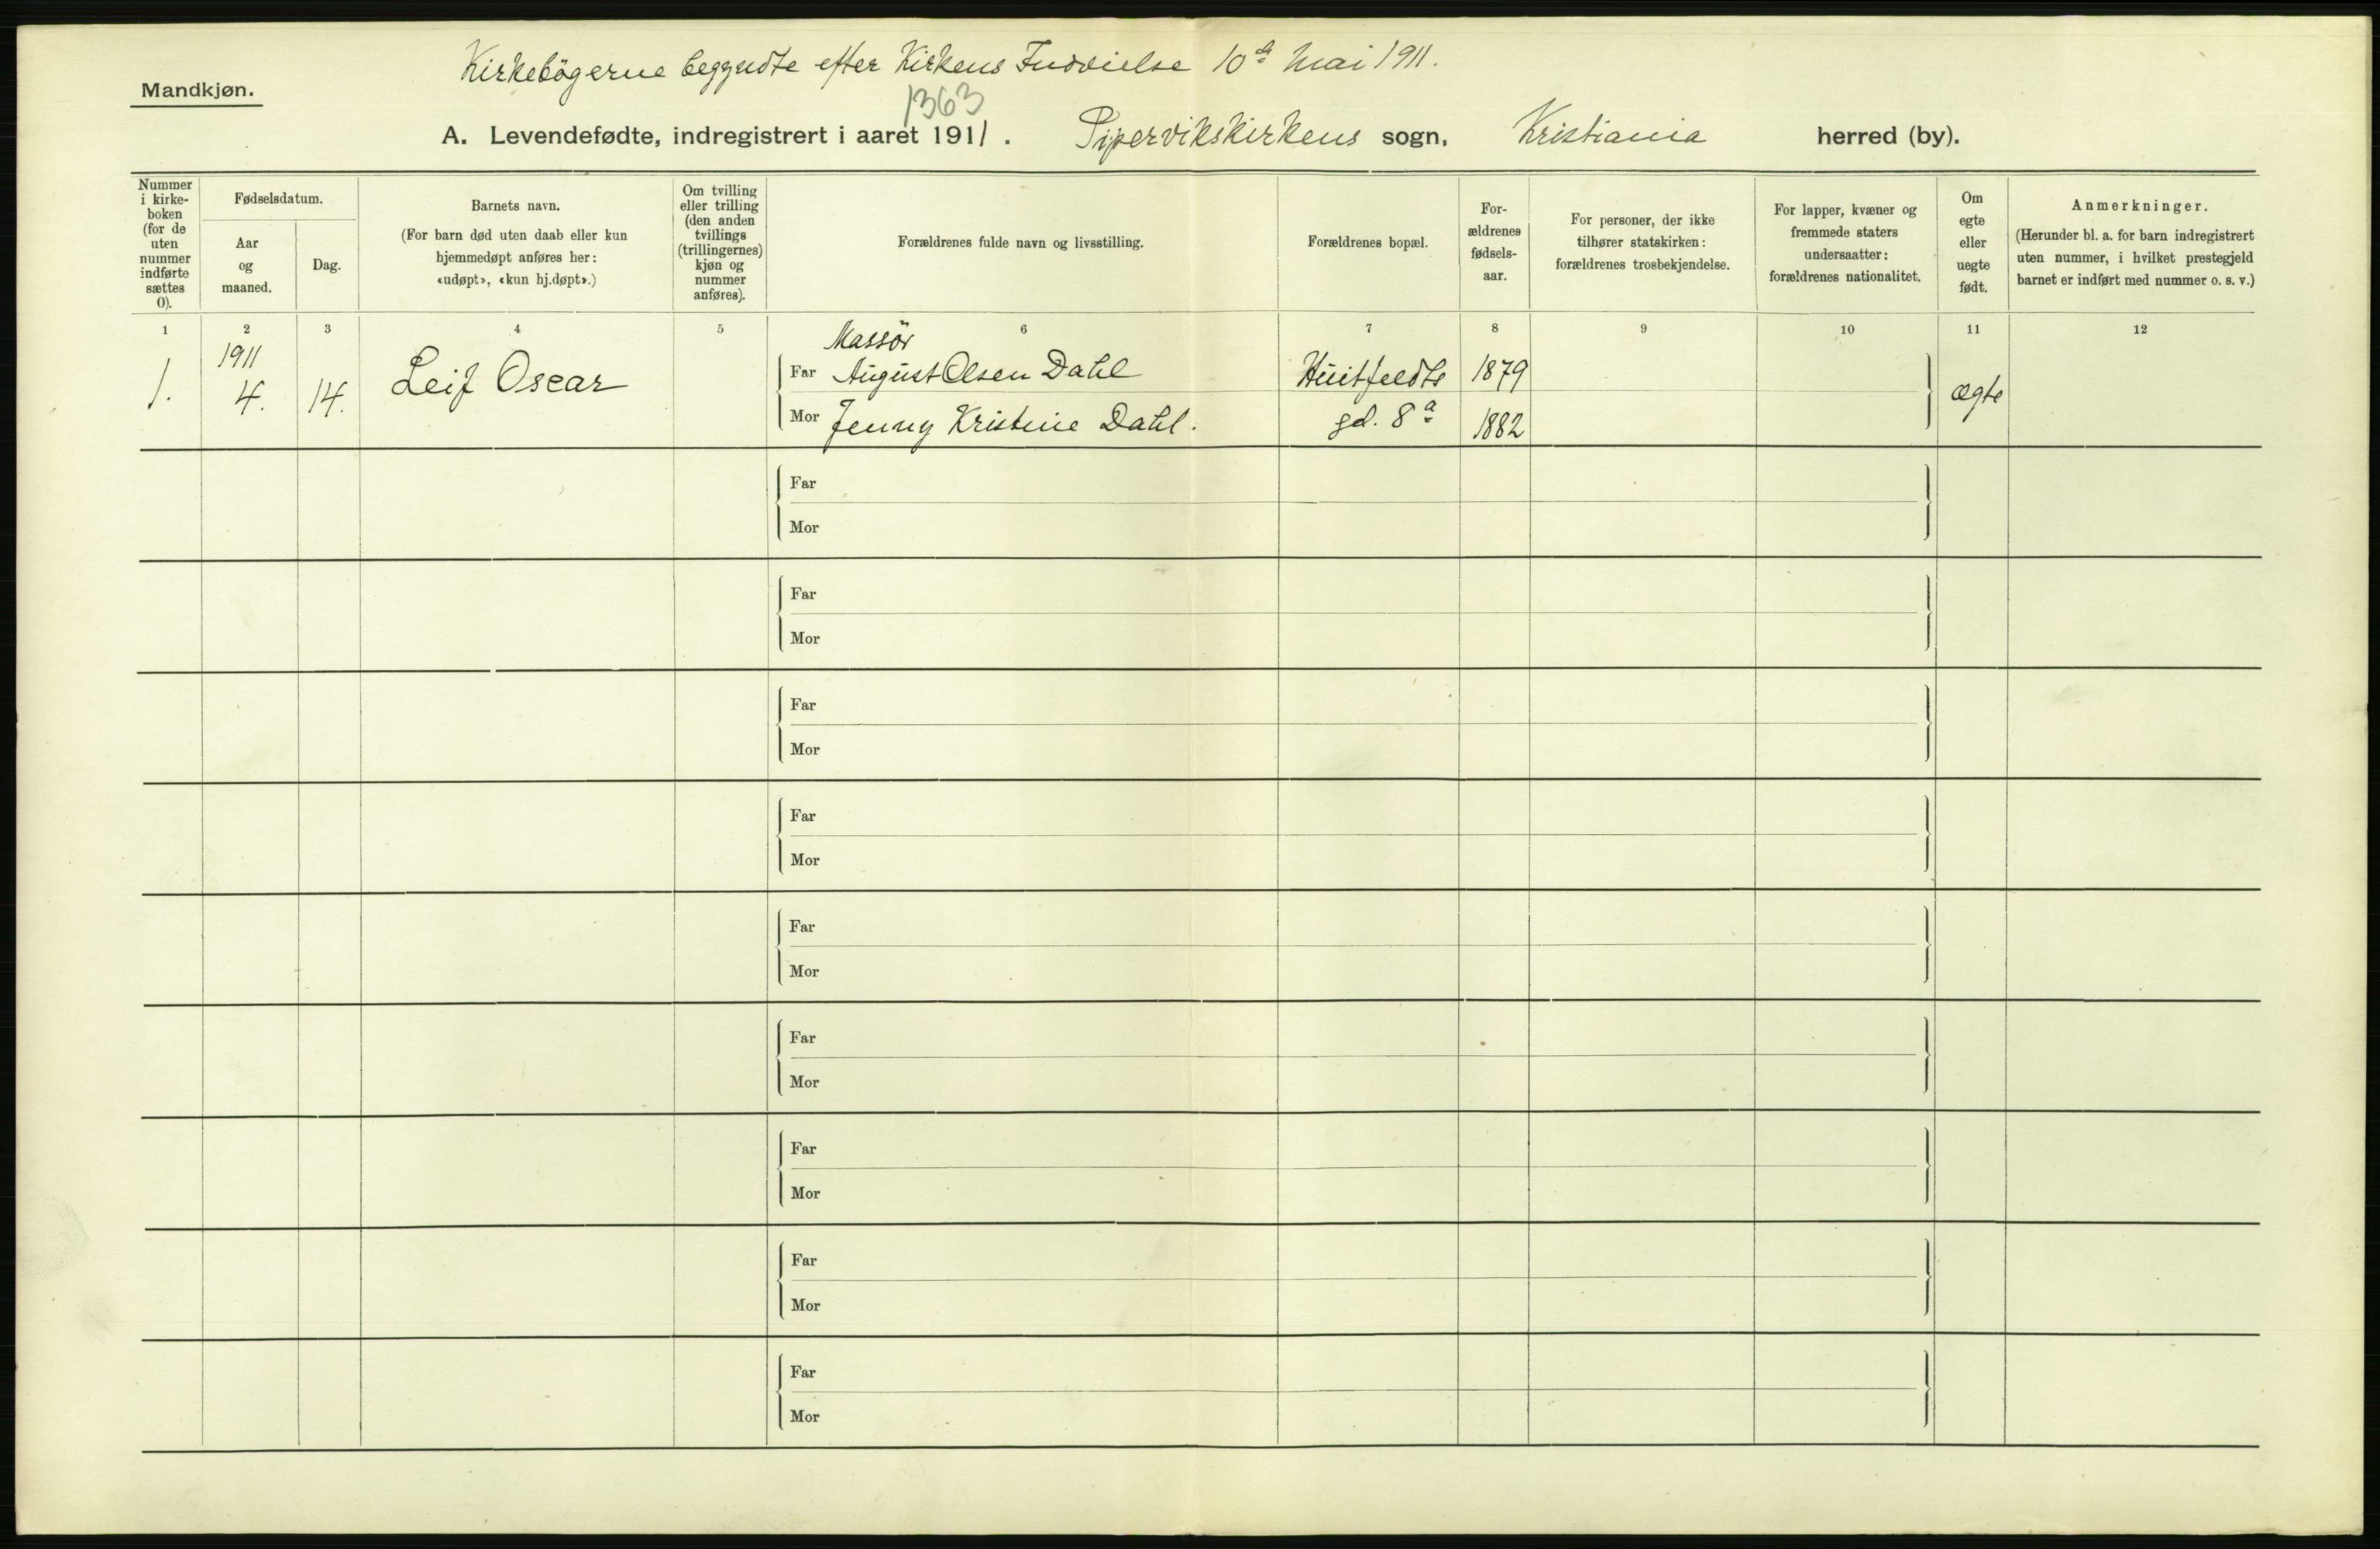 Kirkebögerne begyndte efter Kirkens Indvielse 10de Mai 1911.
Mandkjøn.
1363
A. Levendefødte, indregistrert i aaret 1911. Pipervikskirkens sogn, Kristiania herred (by).
Nummer
i kirke-
boken
(for de
uten
nummer
indførte
sættes
0).
Fødselsdatum.
Aar
og
maaned.
Dag.
Barnets navn.
(For barn død uten daab eller kun
hjemmedøpt anføres her:
«udøpt», «kun hj.døpt».)
Om tvilling
eller trilling
(den anden
tvillings
(trillingernes)
kjøn og
nummer
anføres).
Forældrenes fulde navn og livsstilling.
Forældrenes bopæl.
For-
ældrenes
fødsels-
aar.
For personer, der ikke
tilhører statskirken:
forældrenes trosbekjendelse.
For lapper, kvæner og
fremmede staters
undersaatter:
forældrenes nationalitet.
Om
egte
eller
uegte
født.
Anmerkninger.
(Herunder bl. a. for barn indregistrert
uten nummer, i hvilket prestegjeld
barnet er indført med nummer o. s. v.)
1 2 3 4 5 6 7 8 9 10 11 12
1911 Massör
1. 4. 14. Leif Oscar Far August Olsen Dahl Huitfeldts 1879 ægte
Mor Jenny Kristine Dahl. gd. 8a 1882
Far
Mor
Far
Mor
Far
Mor
Far
Mor
Far
Mor
Far
Mor
Far
Mor
Far
Mor
Far
Mor